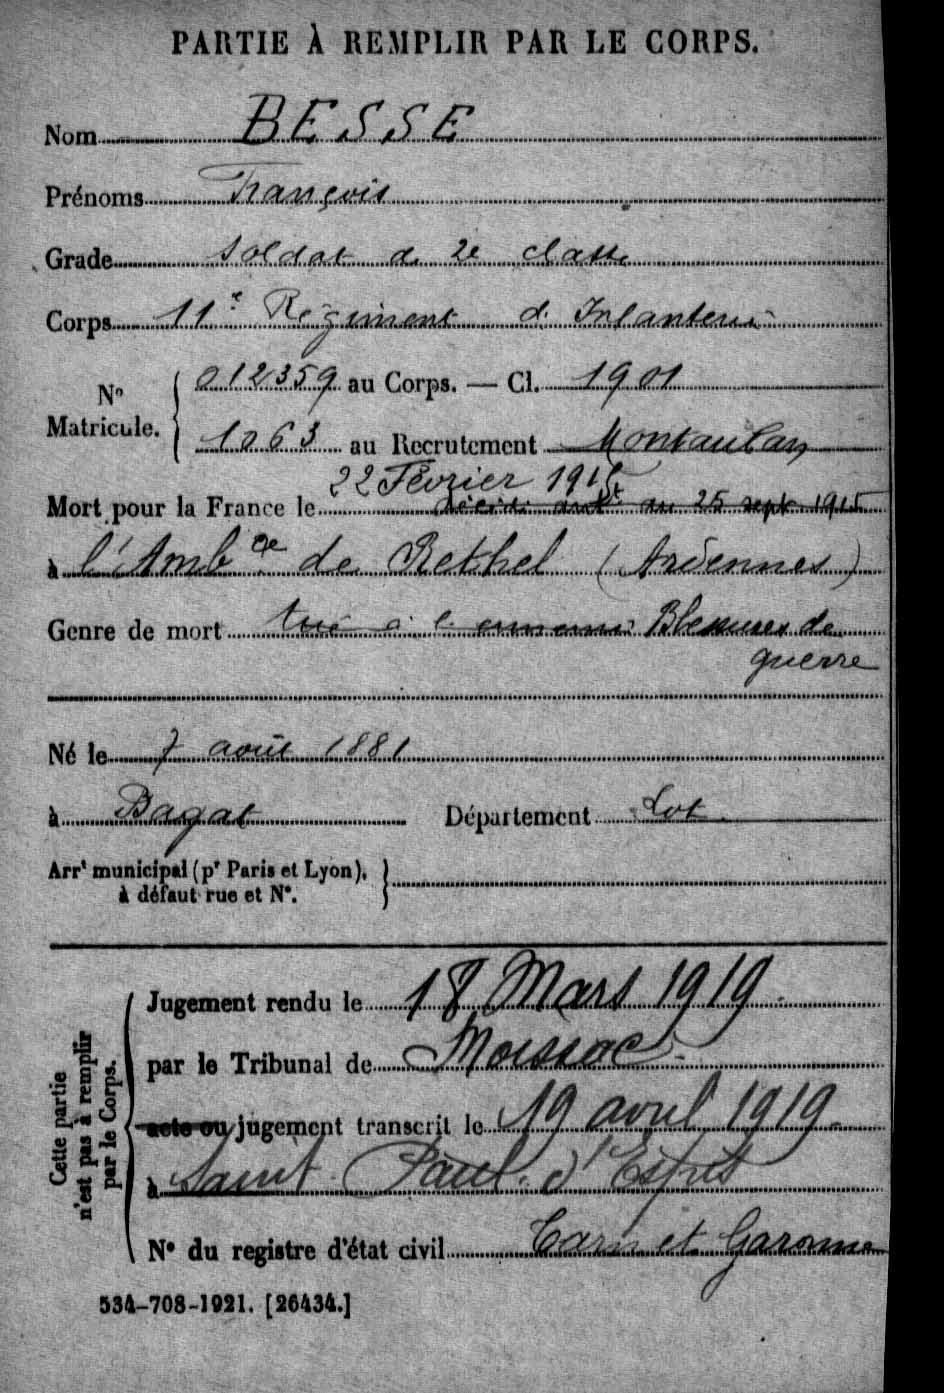 PARTIE À REMPLIR PAR LE CORPS.
Nom BESSE
Prénoms François
Grade soldat de 2e classe
Corps 11e Régiment d'Infanterie
No Matricule. 012359 au Corps. — Cl. 1901
1263 au Recrutement Montauban
22 Février 1915
Mort pour la France le décédé antt au 25 sept. 1915
à l'Ambce de Rethel (Ardennes)
Genre de mort tué à l'ennemi Blessures de
guerre
Né le 7 août 1881
à Bagat Département Lot
Arrt municipal (pr Paris et Lyon),
à défaut rue et No.
Cette partie
n'est pas à remplir
par le Corps.
Jugement rendu le 18 Mars 1919.
par le Tribunal de Moissac
acte ou jugement transcrit le 19 avril 1919.
à Saint Paul d'Espis
No du registre d'état civil Tarn et Garonne
534-708-1921. [26434.]